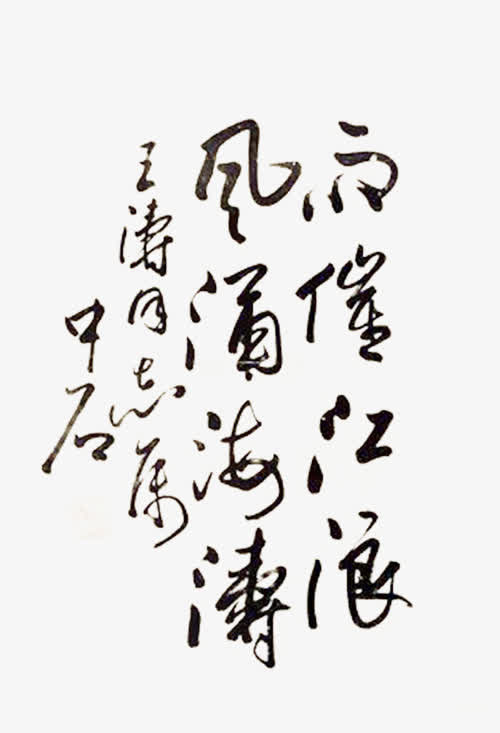 雨催江浪
风满海涛
王涛同志属
中石